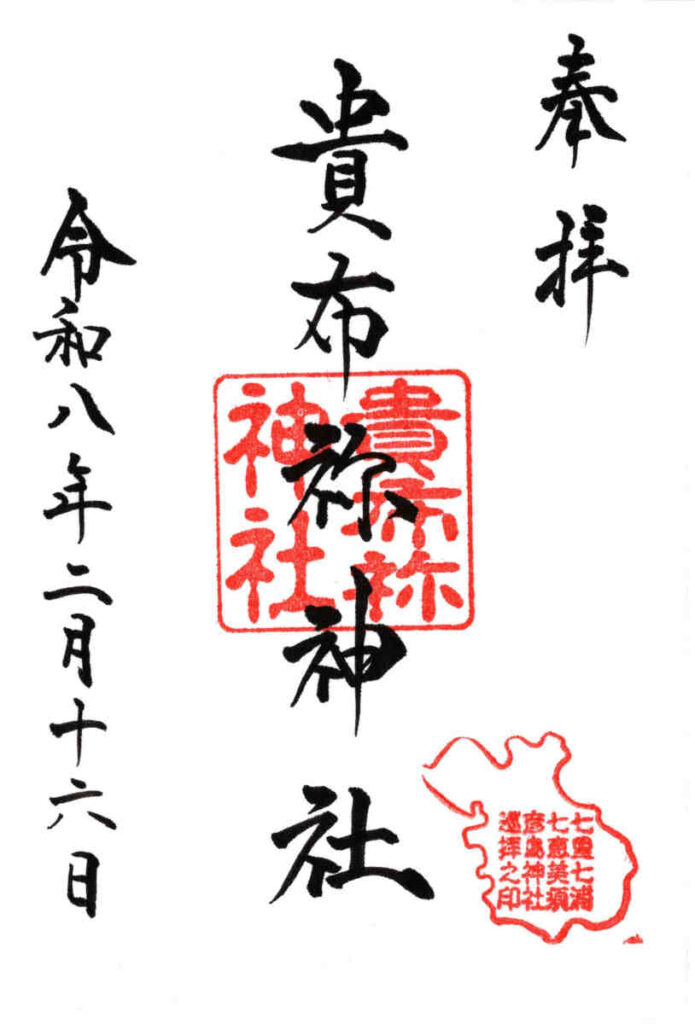 奉拝
貴布祢神社
令和八年二月十六日
貴布祢
神社
七里七浦
七恵美須
彦島神社
巡拝之印